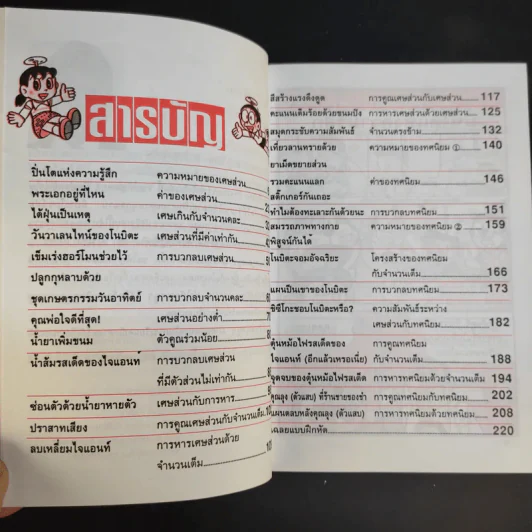 สารบัญ
ปิ่นโตแห่งความรู้สึก ความหมายของเศษส่วน
พระเอกอยู่ที่ไหน ค่าของเศษส่วน
ได้ฝุ่นเป็นเหตุ เศษเกินกับจำนวนคละ
วันวาเลนไทน์ของโนบิตะ เศษส่วนที่มีค่าเท่ากัน
เข็มเร่งฮอร์โมนช่วยไว้ การบวกลบเศษส่วน
ปลูกกุหลาบด้วย
ชุดเกษตรกรรมวันอาทิตย์ การบวกลบจำนวนคละ
คุณพ่อใจดีที่สุด! เศษส่วนอย่างต่ำ
น้ำยาเพิ่มขนม ตัวคูณร่วมน้อย
น้ำส้มรสเด็ดของไจแอนท์ การบวกลบเศษส่วน
ที่มีตัวส่วนไม่เท่ากัน
ซ่อนตัวด้วยน้ำยาหายตัว เศษส่วนกับการหาร
ปราสาทเสียง การคูณเศษส่วนกับจำนวนเต็ม
ลบเหลี่ยมไจแอนท์ การหารเศษส่วนด้วย
จำนวนเต็ม
สีสร้างแรงดึงดูด การคูณเศษส่วนกับเศษส่วน 117
คะแนนเต็มร้อยด้วยขนมปัง การหารเศษส่วนด้วยเศษส่วน 125
สมุดกระชับความสัมพันธ์ จำนวนตรงข้าม 132
เที่ยวลานทรายด้วย ความหมายของทศนิยม ① 140
ยาเม็ดขยายส่วน
รวมคะแนนแลก ค่าของทศนิยม 146
สติ๊กเกอร์กันเถอะ
ทำไมต้องทะเลาะกันด้วยนะ การบวกลบทศนิยม 151
สมรรถภาพทางกาย ความหมายของทศนิยม ② 159
พิสูจน์กันได้
โนบิตะจอมอัจฉริยะ โครงสร้างของทศนิยม
กับจำนวนเต็ม 166
แผนปีนเขาของโนบิตะ การบวกลบทศนิยม 173
ชิซึโกะชอบโนบิตะหรือ? ความสัมพันธ์ระหว่าง
เศษส่วนกับทศนิยม 182
ตุ๋นหม้อไฟรสเด็ด การคูณทศนิยม
ไจแอนท์ (อีกแล้วเหรอเนี่ย) กับจำนวนเต็ม 188
จุดจบของตุ๋นหม้อไฟรสเด็ด การหารทศนิยมด้วยจำนวนเต็ม 194
คุณลุง (ตัวแสบ) ที่ร้านขายของชำ การคูณทศนิยมกับทศนิยม 202
แผนดอบหลังคุณลุง (ตัวแสบ) การหารทศนิยมด้วยทศนิยม 208
เฉลยแบบฝึกหัด 220